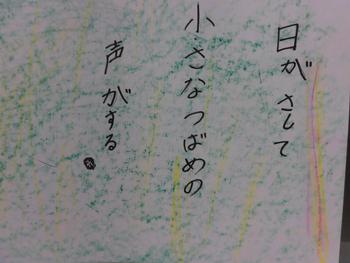 日がさして
小さなつばめの
声がする